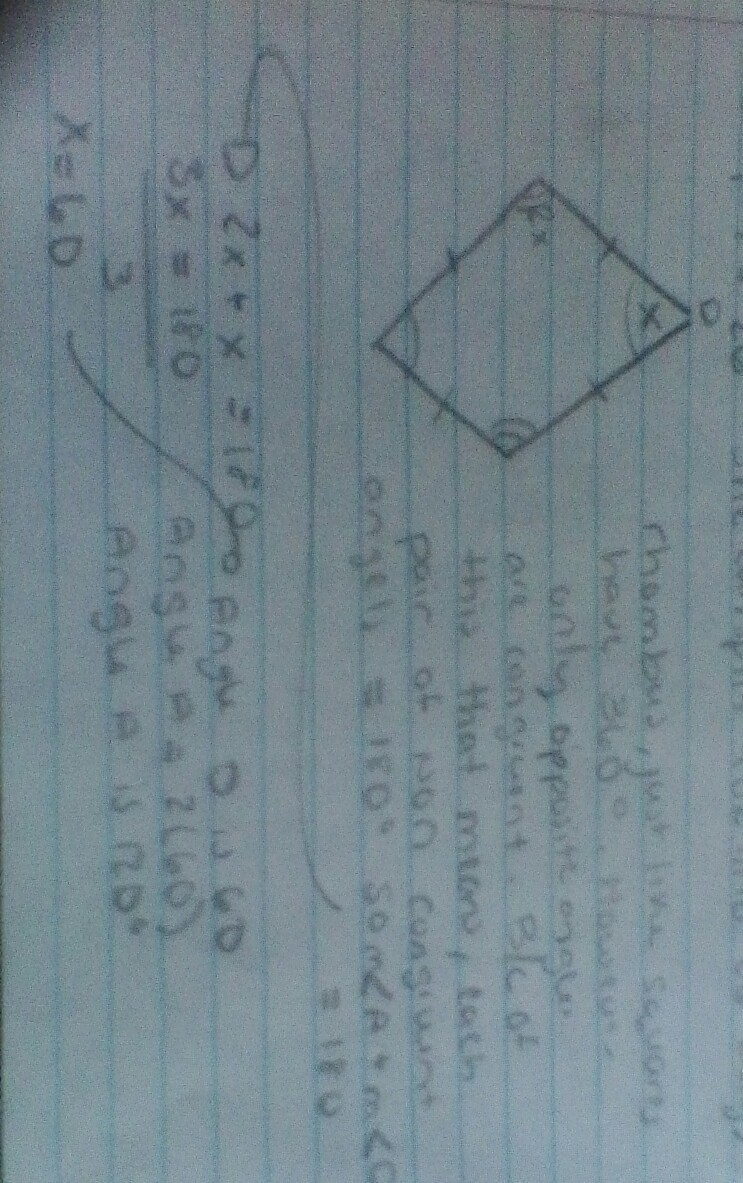 D
x
2x
rhombus, just like squares
have 360°. However,
only opposite angles
are congruent. B/c of
this that means, each
pair of non congruent
angels = 180° so m<A + m<D
= 180
2x + x = 180
3x = 180
3
x = 60
Angle D is 60
Angle A = 2(60)
Angle A is 120°